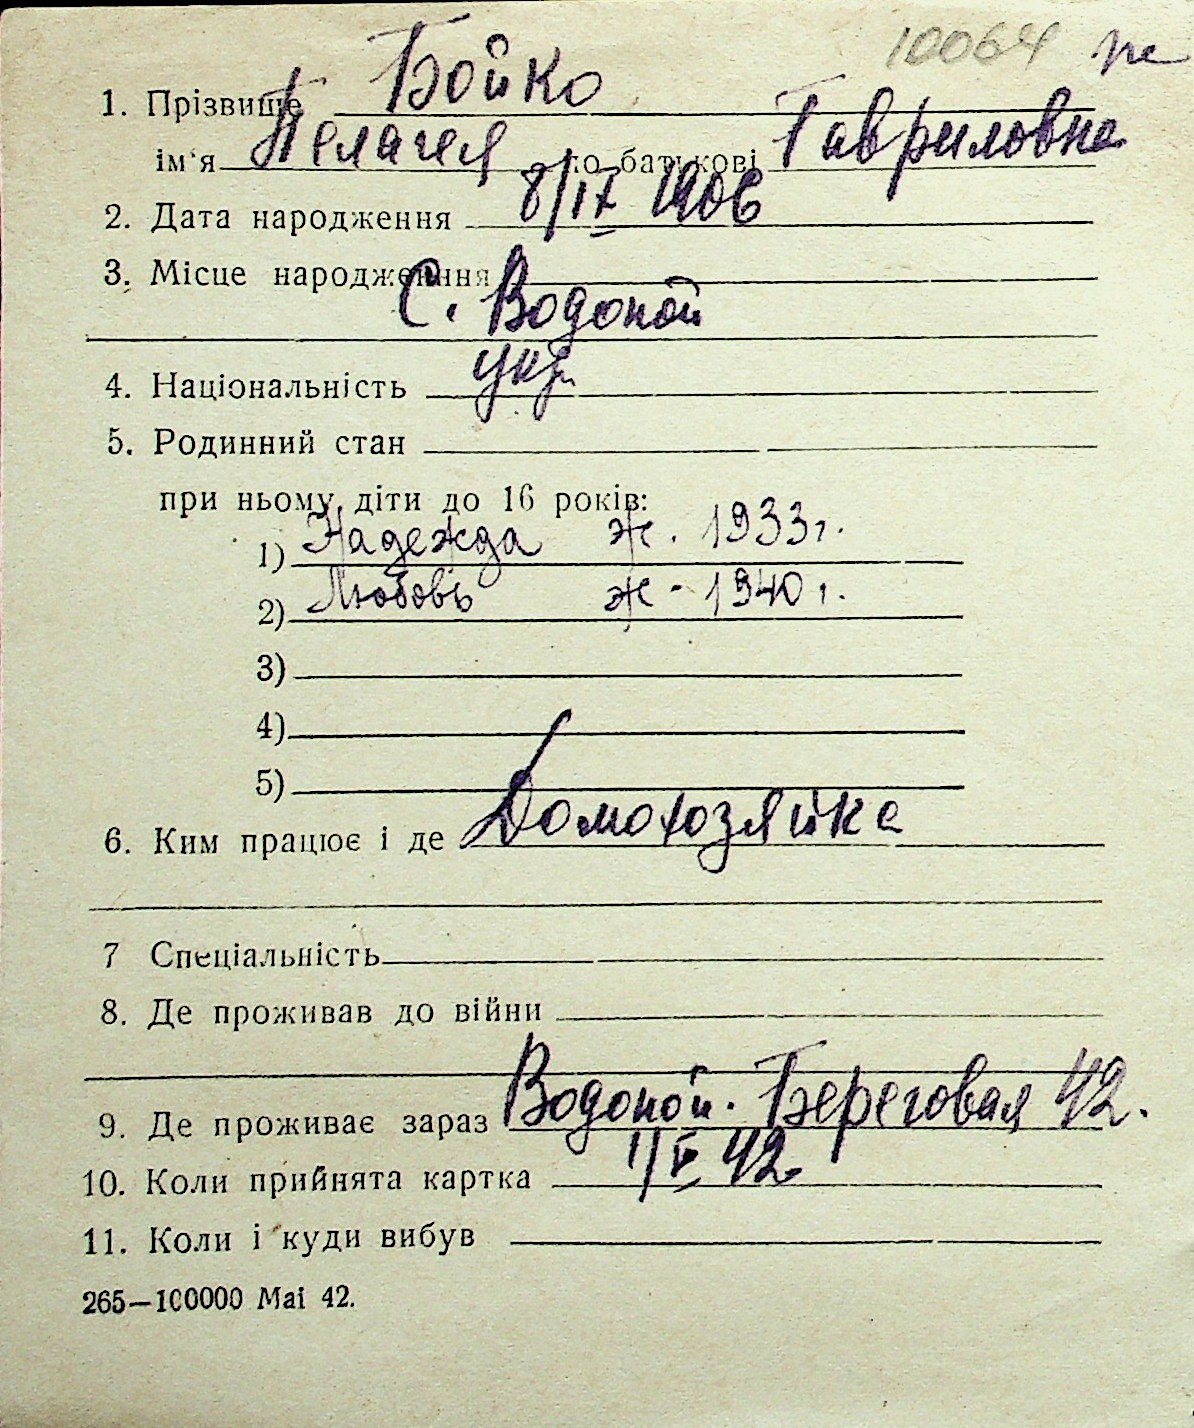 10064
1. Прізвище Бойко
ім'я Пелагея по батькові Гавриловна
2. Дата народження 8/IV 1906
3. Місце народження
С. Водопой
4. Національність укр.
5. Родинний стан
при ньому діти до 16 років:
1) Надежда ж. 1933 г.
2) Любовь ж - 1940 г.
3)
4)
5)
6. Ким працює і де Домохозяйка
7 Спеціальність
8. Де проживав до війни
9. Де проживає зараз Водопой. Береговая 42.
10. Коли прийнята картка 1/V 42
11. Коли і куди вибув
265—100000 Mai 42.